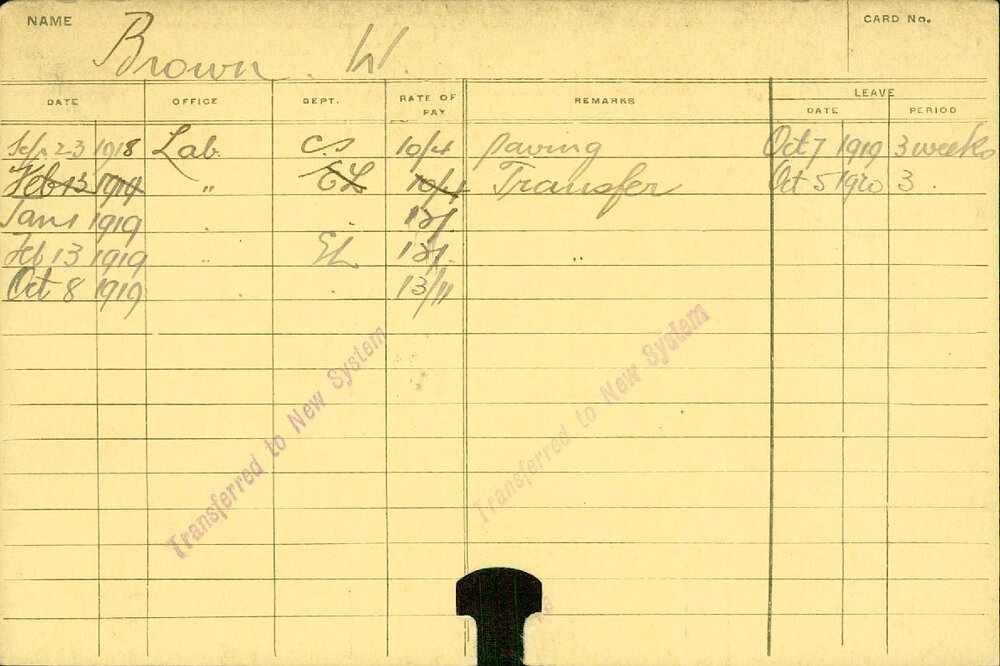 NAME Brown. W. CARD No.
DATE OFFICE DEPT. RATE OF PAY REMARKS LEAVE DATE PERIOD
Sep 23 1918 Lab. CS 10/4 paving Oct 7 1919 3 weeks
Feb 13 1919 " EL 10/4 Transfer Oct 5 1920 3.
Jan 1 1919 . 12/1
Feb 13 1919 " EL 12/1.
Oct 8 1919 . . 13/11
Transferred to New System
Transferred to New System